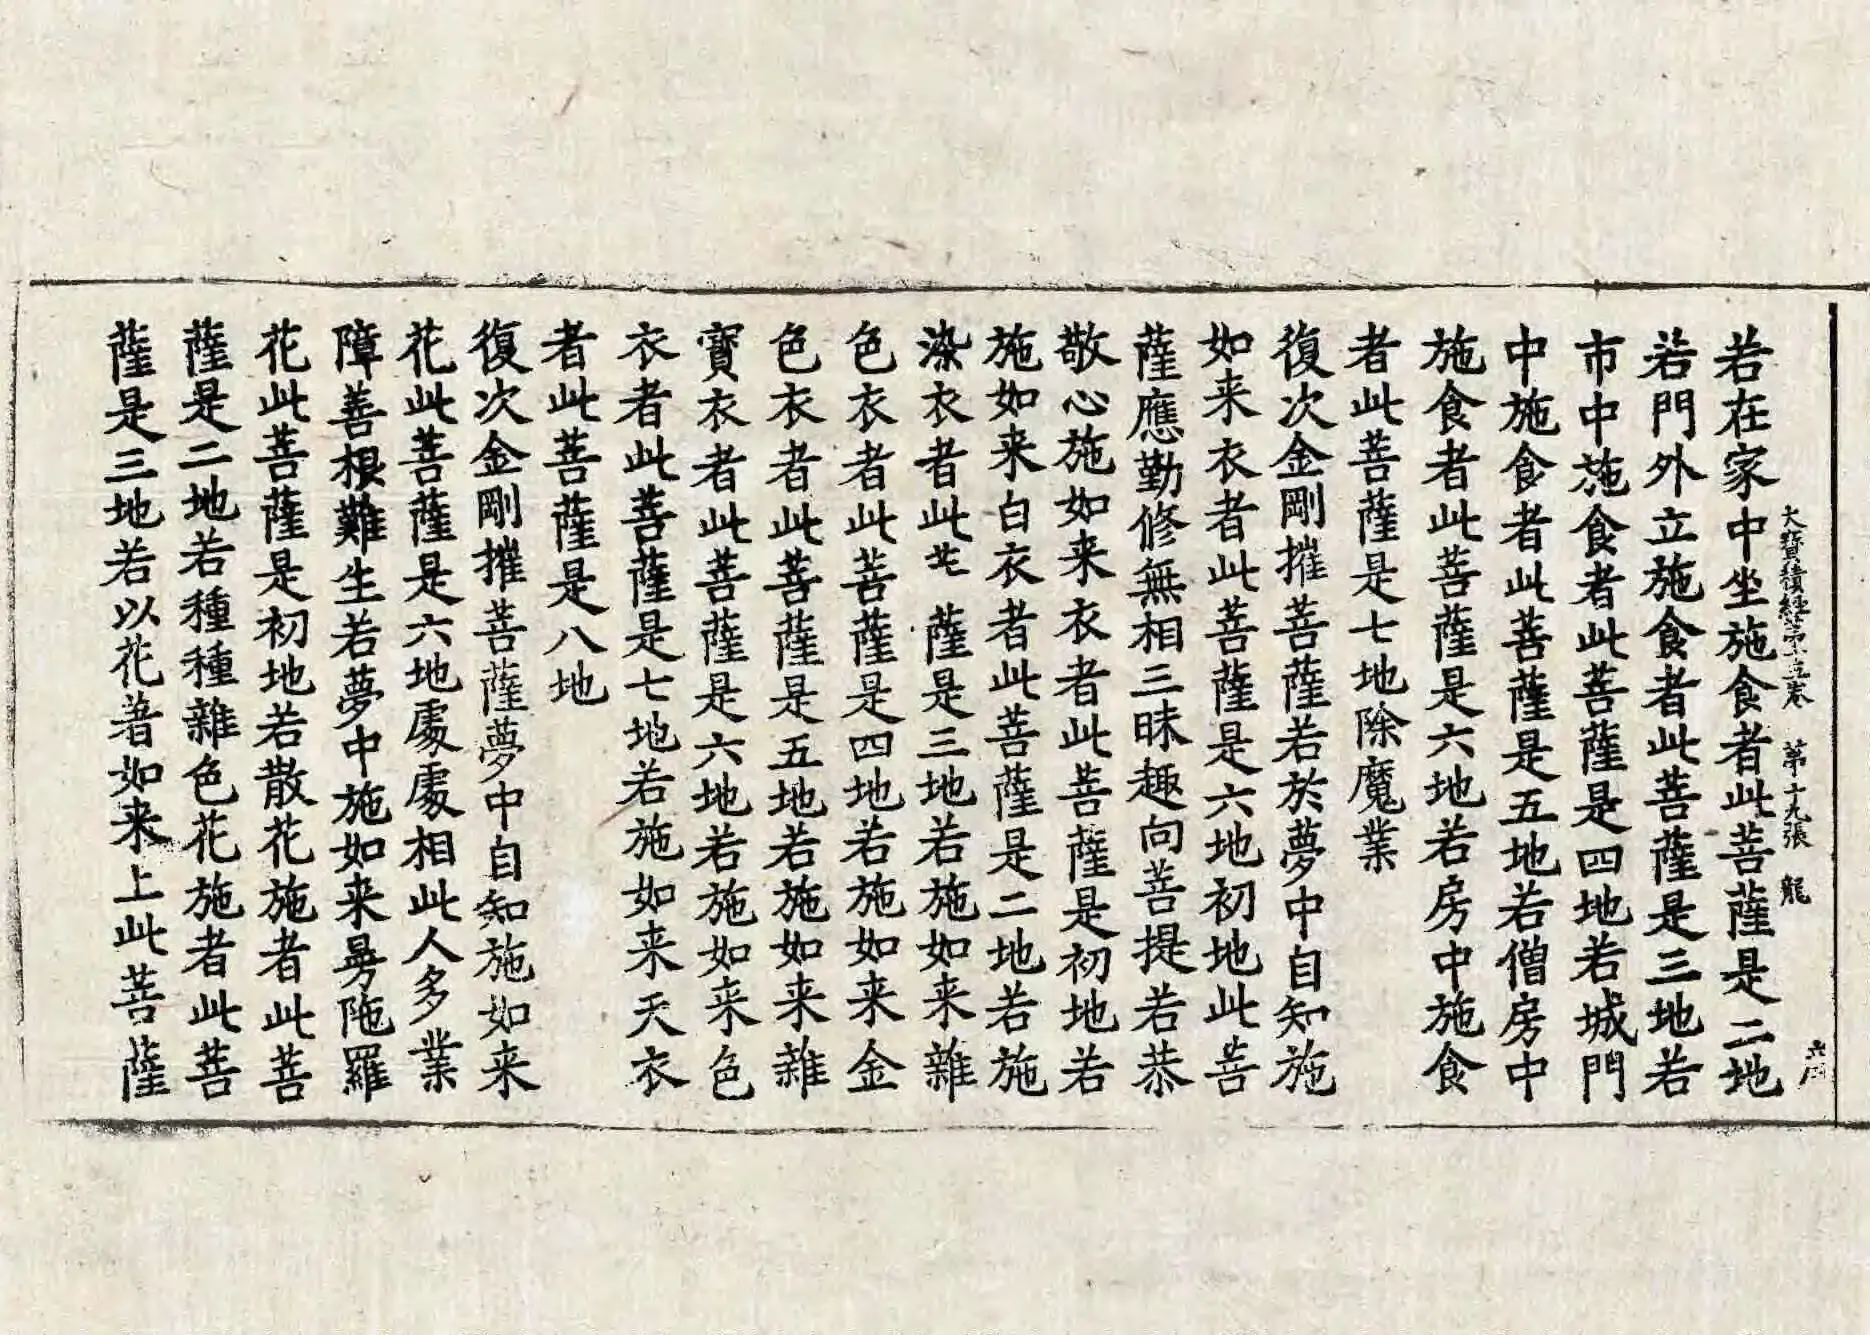 大寶積經第十五卷 第十九張 龍
若在家中坐施食者此菩薩是二地
若門外立施食者此菩薩是三地若
市中施食者此菩薩是四地若城門
中施食者此菩薩是五地若僧房中
施食者此菩薩是六地若房中施食
者此菩薩是七地除魔業
復次金剛摧菩薩若於夢中自知施
如来衣者此菩薩是六地初地此菩
薩應勤修無相三昧趣向菩提若恭
敬心施如来衣者此菩薩是初地若
施如来白衣者此菩薩是二地若施
染衣者此 薩是三地若施如来雜
色衣者此菩薩是四地若施如来金
色衣者此菩薩是五地若施如来雜
寶衣者此菩薩是六地若施如来色
衣者此菩薩是七地若施如来天衣
者此菩薩是八地
復次金剛摧菩薩夢中自知施如来
花此菩薩是六地處處相此人多業
障善根難生若夢中施如来曼陁羅
花此菩薩是初地若散花施者此菩
薩是二地若種種雜色花施者此菩
薩是三地若以花著如来上此菩薩